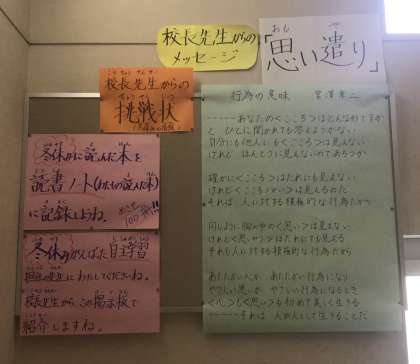 校長先生からの
メッセージ
おも
や
「思い遣り」
こうちょうせんせい
校長先生からの
ちょうせんじょう
挑戦状
冬休みに読んだ本を
読書ノート(わたしの読んだ本)
に記録しようね。
めざせ
100冊!!
冬休みがんばった自主学習
担任の先生にわたしてくださいね。
校長先生から、この掲示板で
紹介しますね。
行為の意味 宮澤章二
-----あなたの<こころ>はどんな形ですか
と ひとに聞かれても答えようがない
自分にも他人にも<こころ>は見えない
けれど ほんとうに見えないのであろうか
確かに<こころ>はだれにも見えない
けれど<こころづかい>は見えるのだ
それは 人に対する積極的な行為だから
同じように胸の中の<思い>は見えない
けれど<思いやり>はだれにでも見える
それも人に対する積極的な行為だから
あたたかい心が あたたかい行為になり
やさしい思いが やさしい行為になるとき
<心>も<思い>も初めて美しく生きる
-----それは 人が人として生きることだ